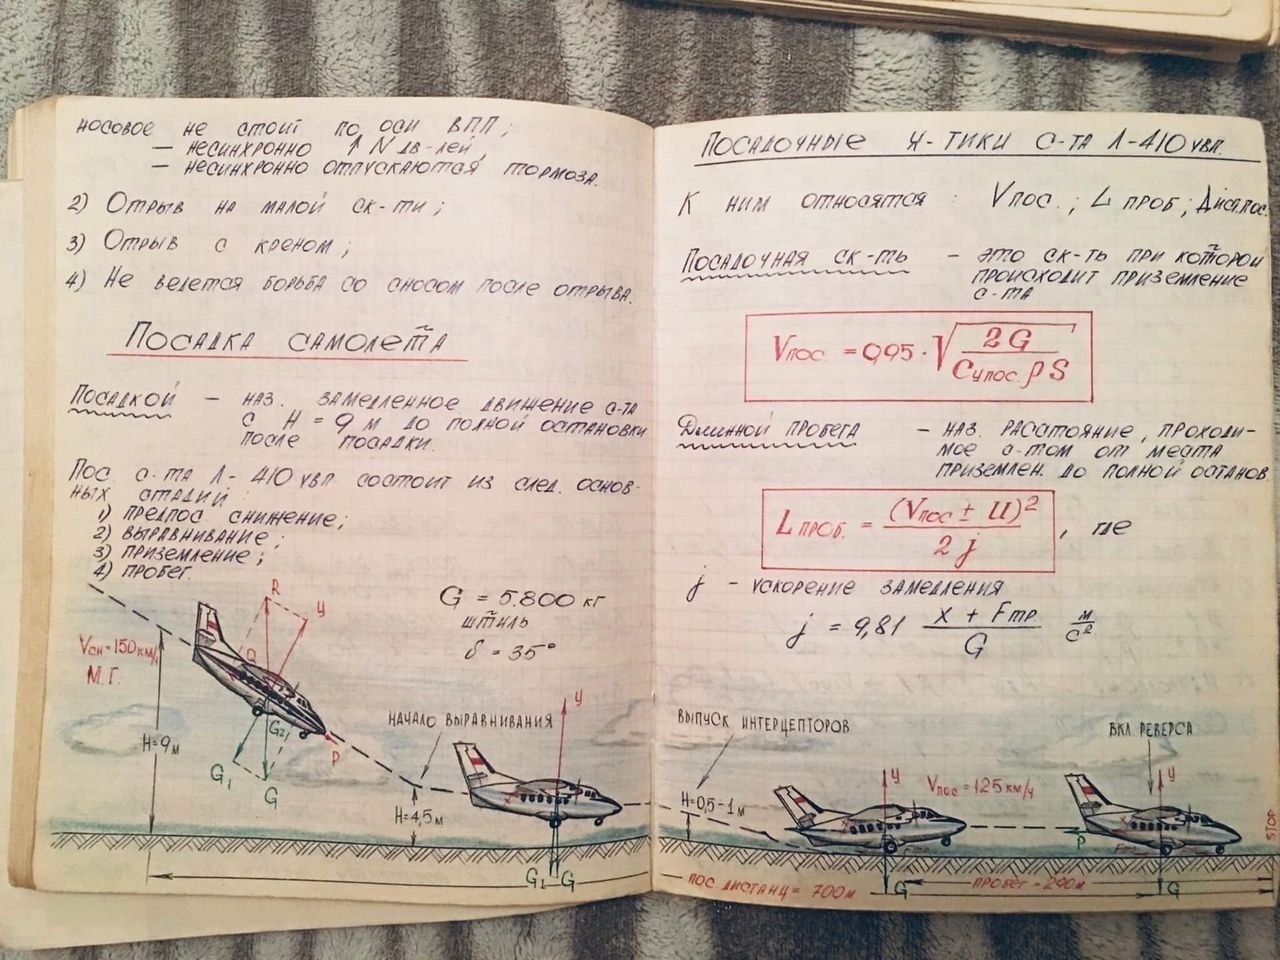 носовое не стоит по оси ВПП;
— несинхронно ↑ N дв-лей,
— несинхронно отпускаются тормоза.
2) Отрыв на малой ск-ти;
3) Отрыв с креном;
4) Не ведется борьба со сносом после отрыва.
Посадка самолета
Посадкой — наз. замедленное движение с-та
с H = 9 м до полной остановки
после посадки.
Пос. с-та Л-410 увп состоит из след. основ-
ных стадий:
1) предпос. снижение;
2) выравнивание;
3) приземление;
4) пробег.
G = 5.800 кг
штиль
δ = 35°
R
У
Vсн = 150 км/ч
М.Г.
Q
H = 9 м
G2
G1
G
P
начало выравнивания
У
H = 4,5 м
G1 G
Посадочные х-тики с-та Л-410 увп.
К ним относятся: Vпос.; L проб; Дист.пос.
Посадочная ск-ть — это ск-ть при которой
происходит приземление
с-та
Vпос. = 0,95 · √ 2G / Cупос. ρ S
Длинной пробега — наз. расстояние, проходи-
мое с-том от места
приземлен. до полной останов.
L проб. = (Vпос ± U)² / 2 j , где
j — ускорение замедления
j = 9,81 X + Fтр / G м/с²
выпуск интерцепторов
вкл. реверса
H = 0,5-1 м
У
Vпос = 125 км/ч
У
X
X
P
Fтр
Fтр
STOP
пос. дистанц = 700 м
G
пробег = 290 м
G